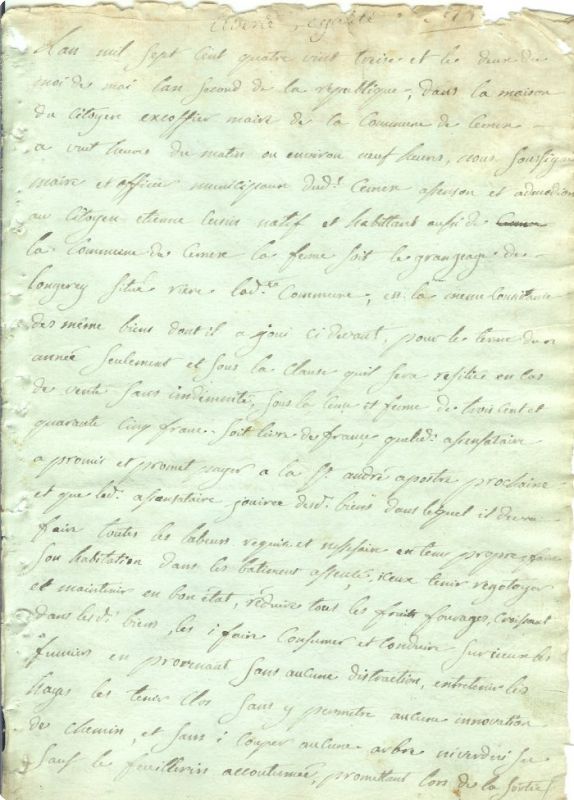 Liberté, égalité
Lan mil sept Cent quatre vint treise et le deux du
moi de mai lan second de la republique, dans la maison
du Citoyen excoffier maire de la Commune de Cernex
a vuit heures du matin ou environ neuf heurs, nous soussignés
maire et officier municipaux dud.t Cernex assenson et admodions
au Citoyen etienne natif et habittant aussi de Cernex
la Commune de Cernex la ferme soit le grangeage de
Longerey situé riere lad.te Commune, et la meme Consistance
des même biens dont il a joui ci devant, pour le terme du
année seulement et sous la Clause quil sera resiliée en Cas
de vente sans indemnité, sous la Cense et ferme de trois Cent et
quarante Cinq franc soit livre de france que led.t assensataire
a promis et promet payer a la St. andré apostre prochaine
et que led.t assensataire jouirat desd.t biens dans lequel il devra
faire toutes les labeurs requis et nessaire en tem propre, faire
Son habitation dans les batiment assensé, iceux tenir
et maintenir en bon état, reduire tous les fruits fourages, Croissant
dans lesd.t biens, les i faire Consumer et Conduire sur iceux les
fumiers en provenant sans aucune distraction, entretenir les
hayes les tenir Clos sans y permetre aucune innovation
de chemin, et sans i Couper aucune arbre ni verd ni sec
Sauf le feuillerin accoutumée, promettant lors de la sortie